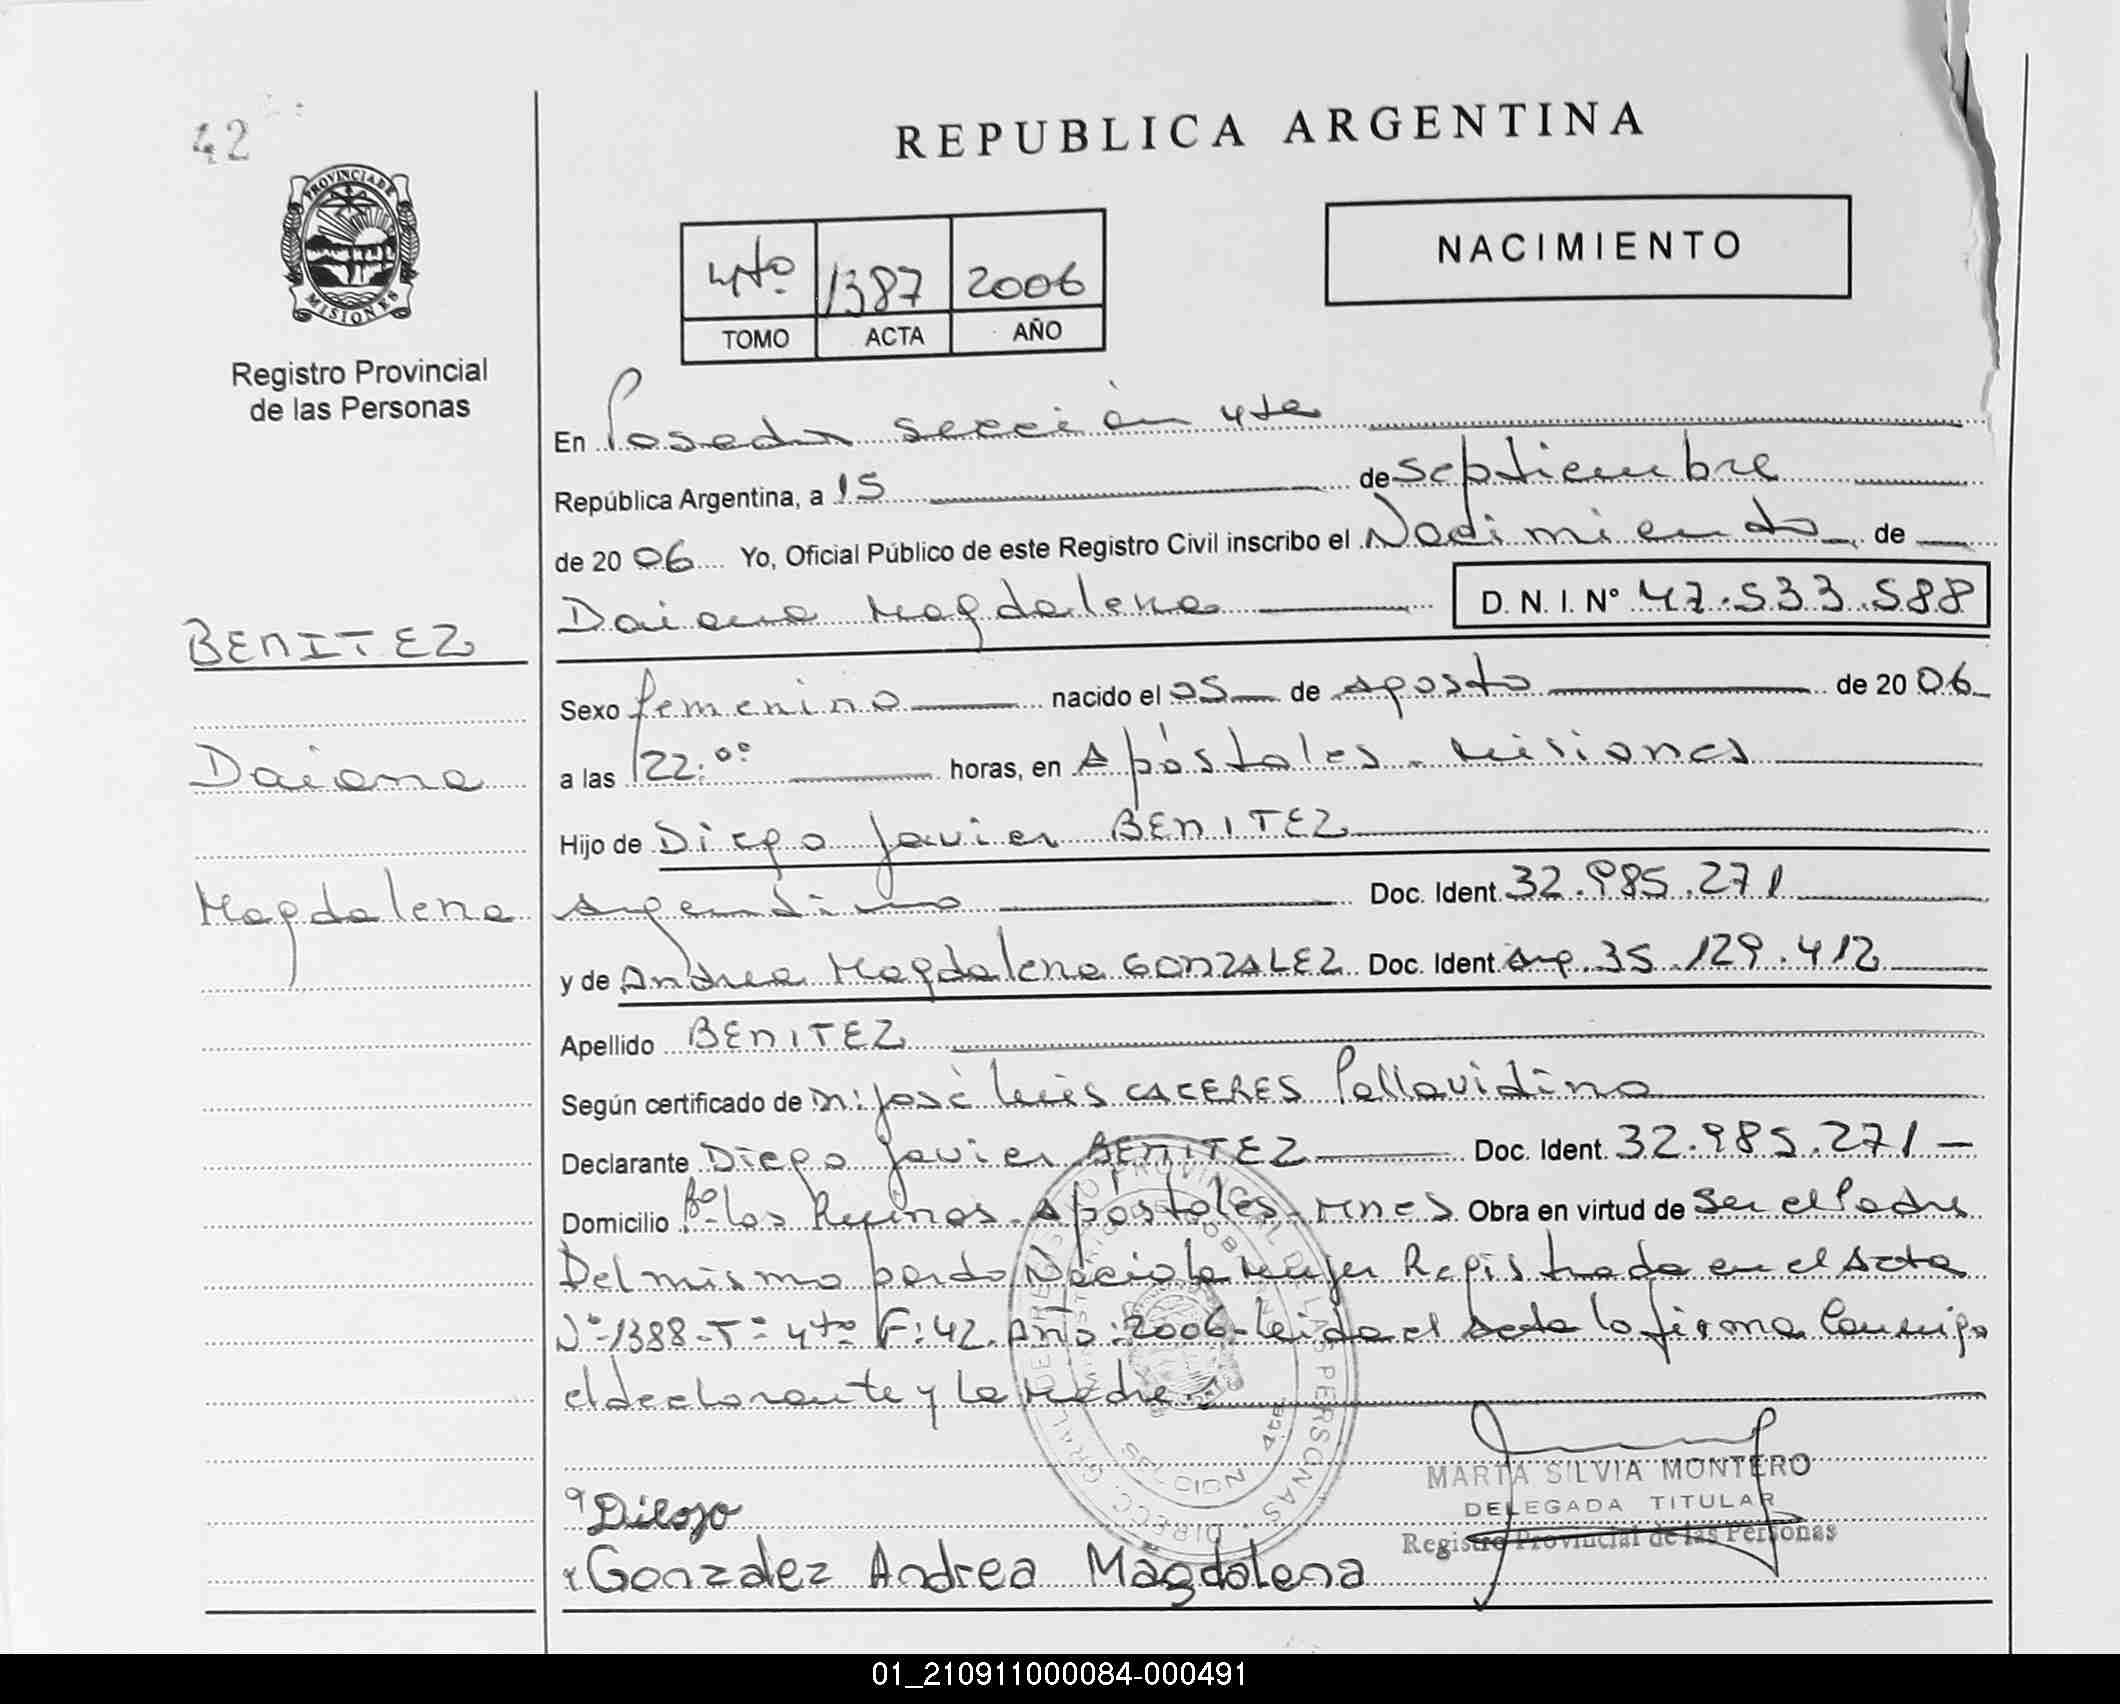 42
REPUBLICA ARGENTINA
PROVINCIA DE
MISIONES
Registro Provincial
de las Personas
4to 1387 2006
TOMO ACTA AÑO
NACIMIENTO
En Posadas sección 4ta
República Argentina, a 15 de septiembre
de 20 06 Yo, Oficial Público de este Registro Civil inscribo el Nacimiento de
Daiana Magdalena D. N. I. Nº 47.533.588
BENITEZ
Daiana
Magdalena
Sexo femenino nacido el 05 de agosto de 20 06
a las 22:00 horas, en Apóstoles - Misiones
Hijo de Diego Javier BENITEZ
argentino Doc. Ident. 32.985.271
y de Andrea Magdalena GONZALEZ Doc. Ident. Arg. 35.129.412
Apellido BENITEZ
Según certificado de Dr: José Luis CACERES Pallavidino
Declarante Diego Javier BENITEZ Doc. Ident. 32.985.271
Domicilio Bº los Apóstoles - Mnes Obra en virtud de ser el Padre
Del mismo parto Nació la mujer Registrada en el acta
Nº 1388-Tº 4to F: 42. Año: 2006- leída el acta lo firma conmigo
el declarante y la madre.
Diego
Gonzalez Andrea Magdalena
MARTA SILVIA MONTERO
DELEGADA TITULAR
Registro Provincial de las Personas
01_210911000084-000491